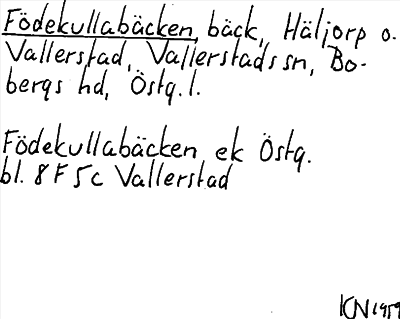 Födekullabäcken, bäck, Häljorp o.
Vallerstad, Vallerstads sn, Bo-
bergs hd, Östg. l.
Födekullabäcken ek Östg.
bl. 8 F 5 c Vallerstad
KN 1959